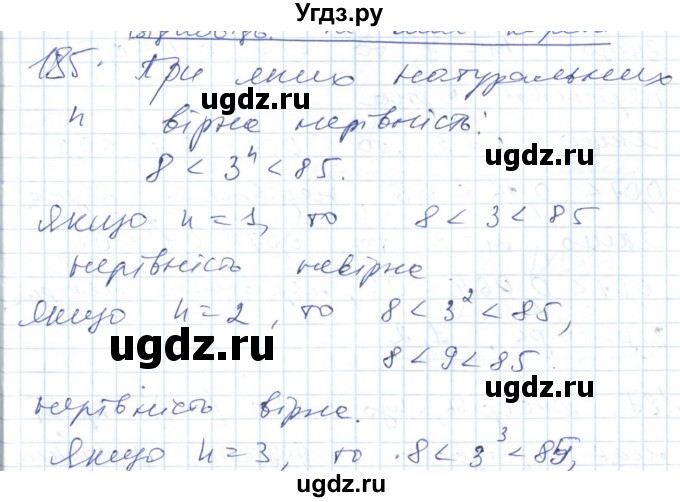 Угдз.ру
Відповідь.
185. При яких натуральних
n вірна нерівність:
8 < 3ⁿ < 85.
Якщо n = 1, то 8 < 3 < 85
нерівність невірна
Якщо n = 2, то 8 < 3² < 85,
8 < 9 < 85.
нерівність вірна.
Якщо n = 3, то 8 < 3³ < 85,
ugdz.ru
ugdz.ru
ugdz.ru
ugdz.ru
ugdz.ru
ugdz.ru
ugdz.ru